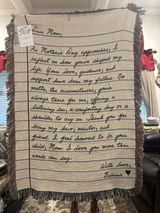 Dear Mom,
As Mother's Day approaches, I
reflect on how you've shaped my
life. Your love, guidance, and
support have been my pillars. No
matter the circumstances, you're
always there for me, offering a
listening ear, a comforting hug, or a
shoulder to cry on. Thank you for
being my
friend. I feel honored to be your
child, Mom. I love you more than
words can say.
With love,